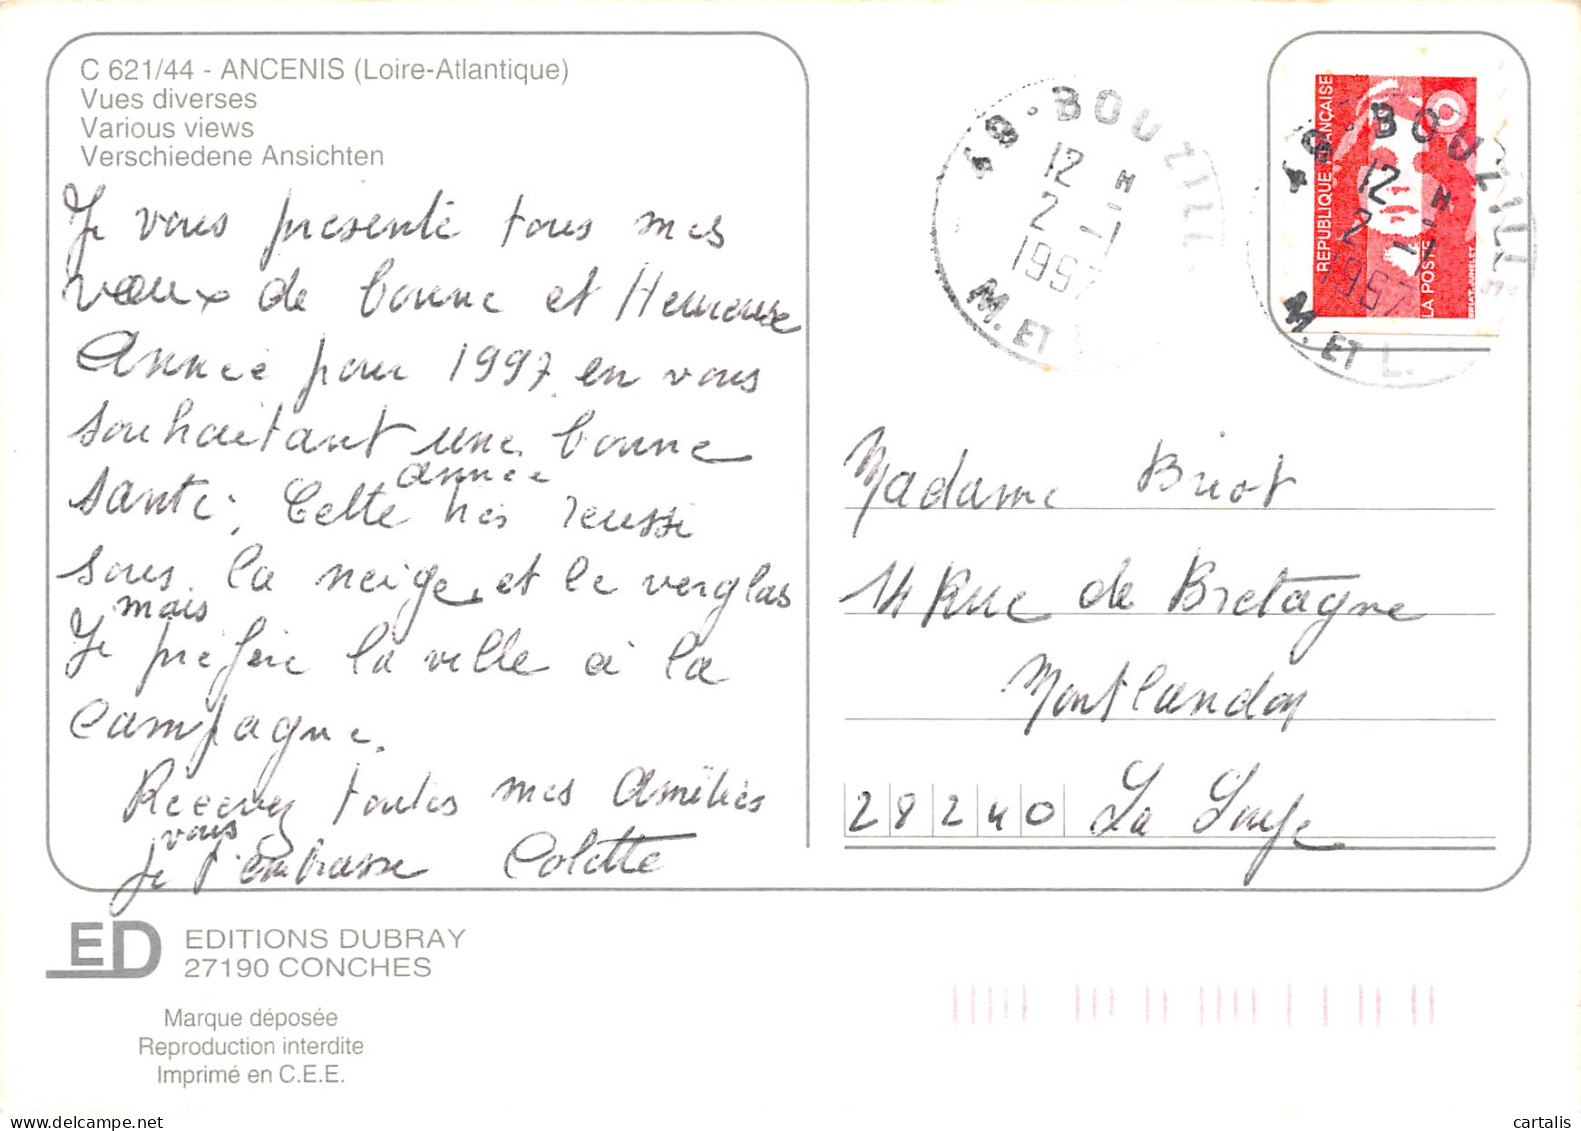 C 621/44 - ANCENIS (Loire-Atlantique)
Vues diverses
Various views
Verschiedene Ansichten
Je vous présente tous mes
vœux de bonne et Heureuse
Année pour 1997 en vous
souhaitant une bonne
santé, Cette année très reussi
sous la neige, et le verglas
mais
Je préfère la ville à la
campagne.
Recevez toutes mes Amitiés
vous
Je t'embrasse Colette
49 - BOUZILL
12 H
2 - 1
1997
M. ET L.
49 - BOUZILLE
12 H
2 - 1
1997
M. ET L.
REPUBLIQUE FRANÇAISE
LA POSTE
BRIAT-JUMELET
Madame Briot
14 Rue de Bretagne
Montlandon
28240 La Loupe
ED
EDITIONS DUBRAY
27190 CONCHES
Marque déposée
Reproduction interdite
Imprimé en C.E.E.
cartalis